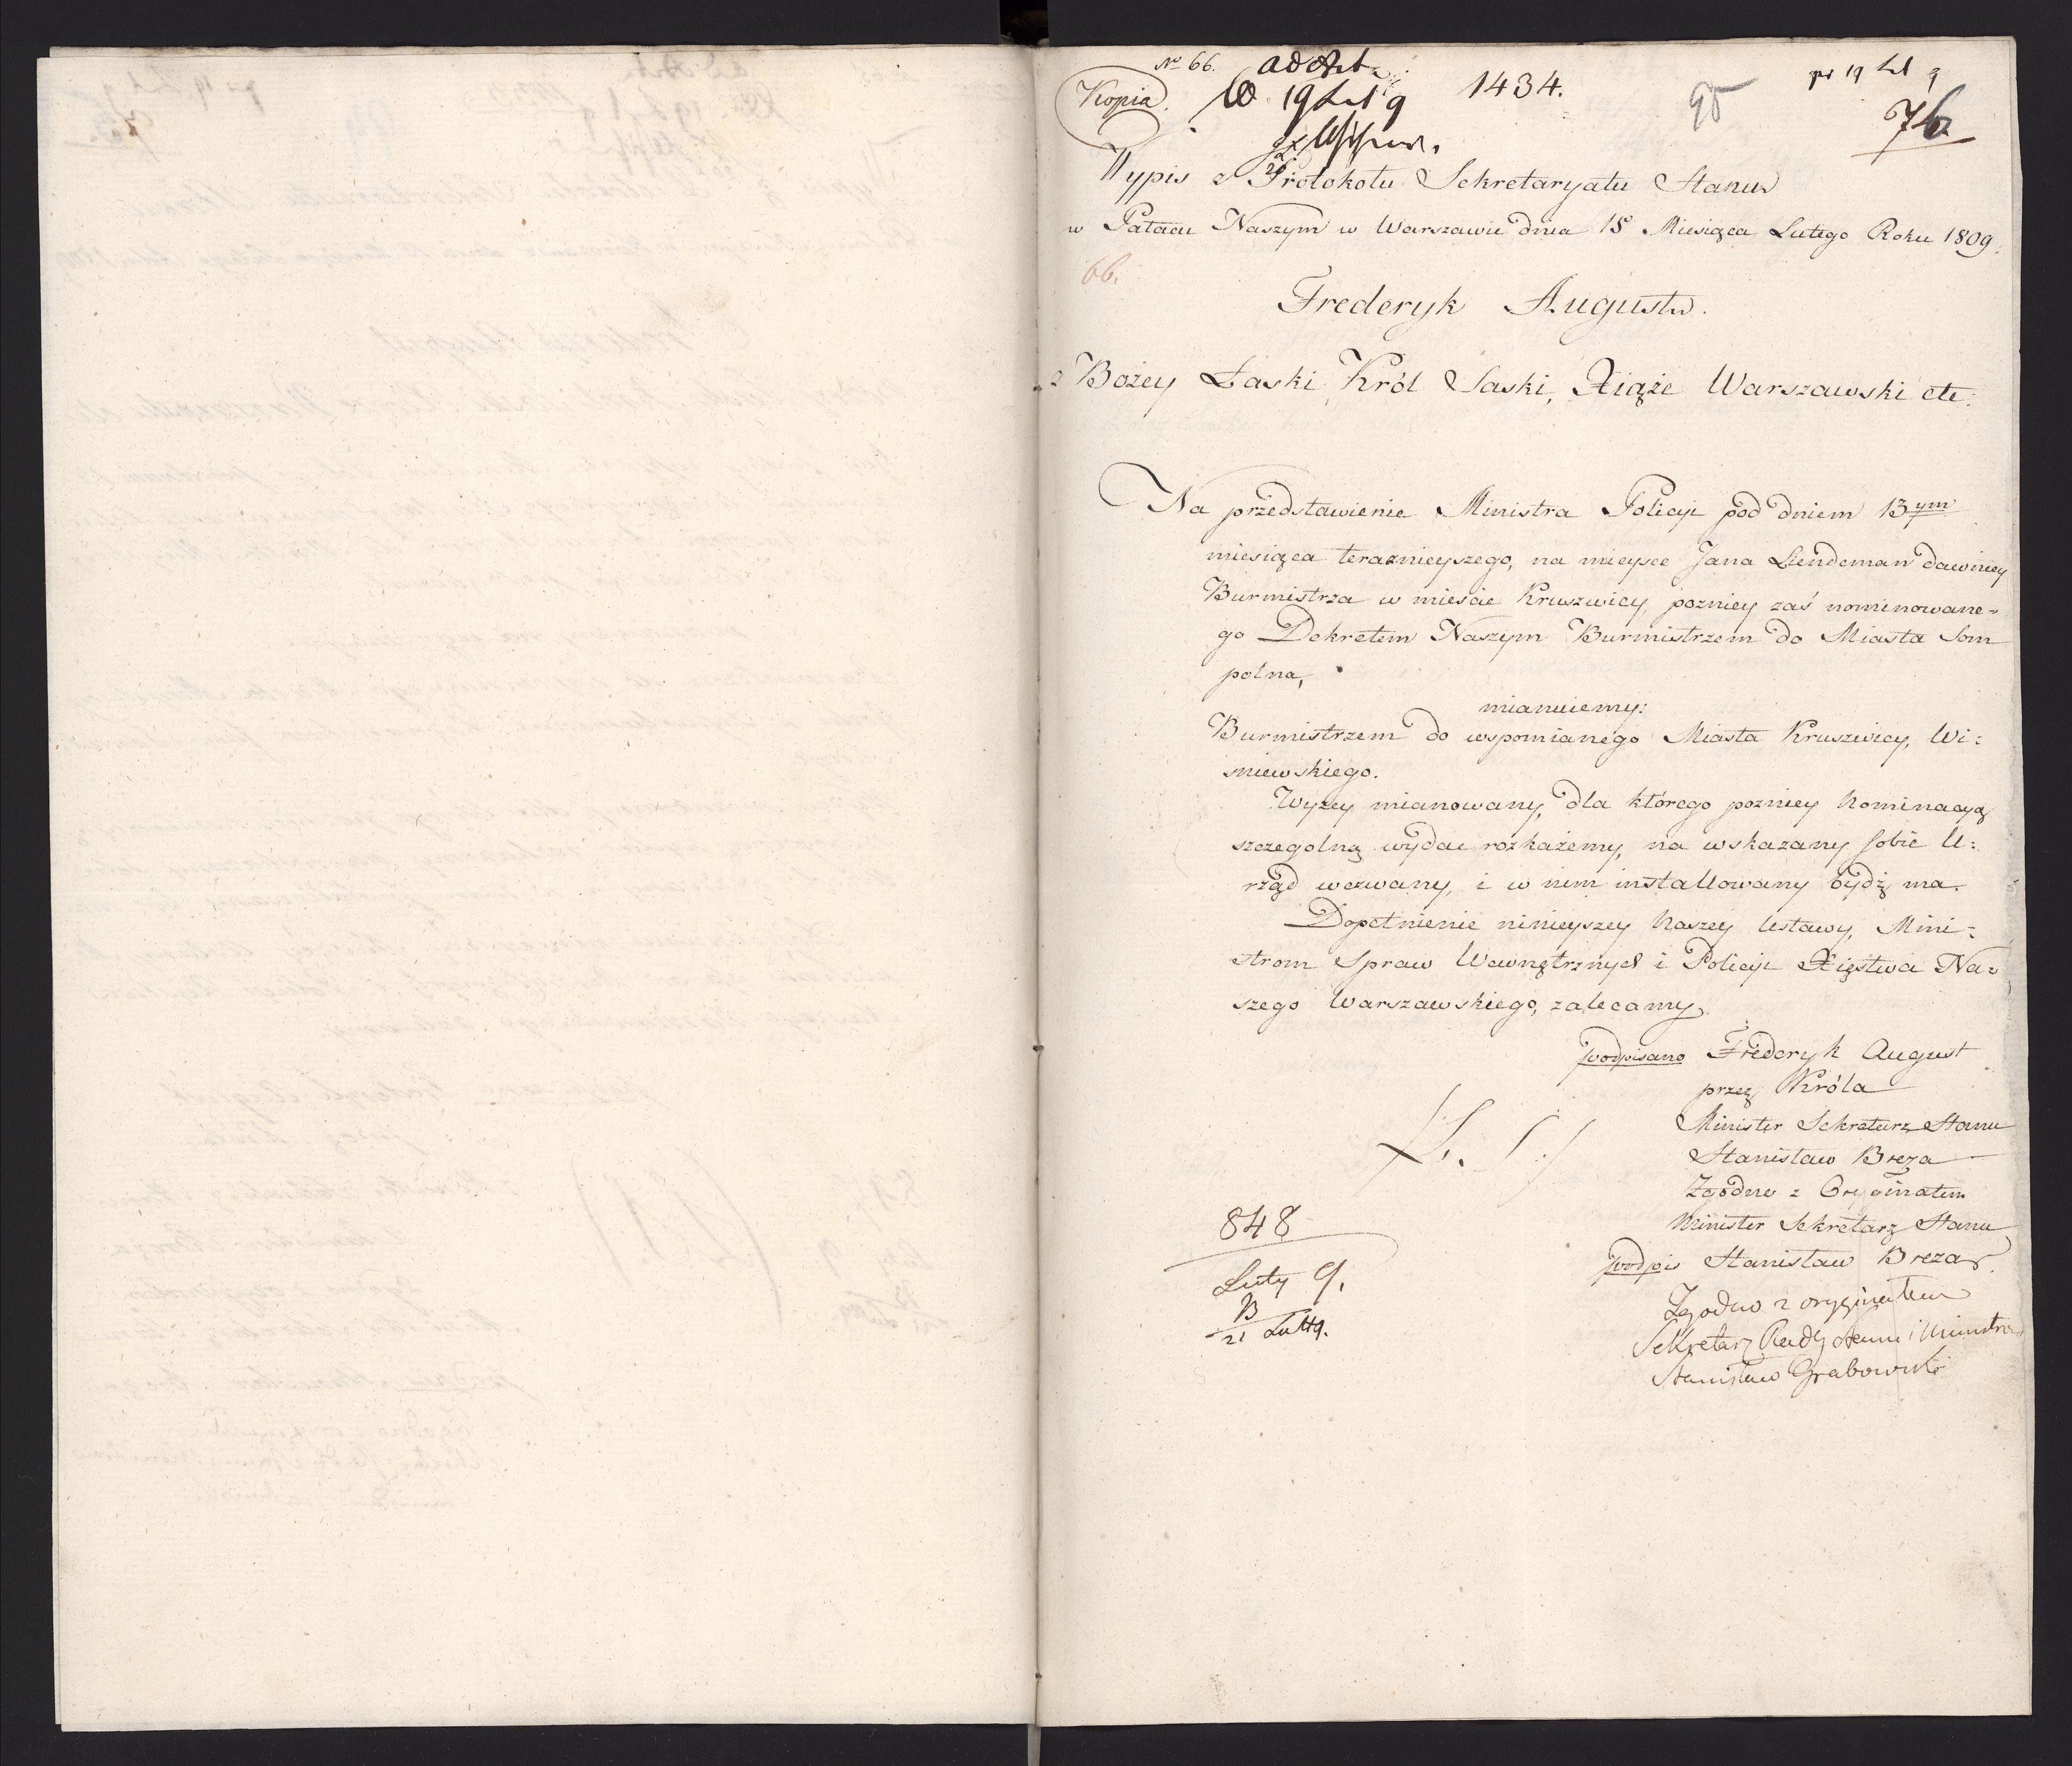 № 66.
ad Act
1434.
95
pr 19 Lut 9
Kopia.
19 Lut 9
76
Wypis z Protokołu Sekretaryatu Stanu
w Pałacu Naszym w Warszawie dnia 15 Miesiąca Lutego Roku 1809.
66.
Frederyk August.
z Bożey Łaski Król Saski, Xiąże Warszawski etc.
Na przedstawienie Ministra Policyi pod dniem 13ym
miesiąca teraznieyszego, na mieysce Jana Liendeman dawniey
Burmistrza w mieście Kruszwicy, pozniey zaś nominowane=
go Dekretem Naszym Burmistrzem do Miasta Som
polna,
mianuiemy:
Burmistrzem do wspomianego Miasta Kruszwicy, Wi=
sniewskiego.
Wyzey mianowany, dla którego pozniey Nominacyą
szczegolną wydac rozkażemy, na wskazany sobie U=
rząd wezwany, i w nim installowany bydz ma.
Dopełnienie ninieyszey Naszey Ustawy, Mini=
strom Spraw Wewnętrznych i Policyi Xięstwa Na=
szego Warszawskiego, zalecamy.
podpisano Frideryk August
przez Króla
Minister Sekretarz Stanu
L. S.
Stanisław Breza
Zgodno z Oryginałem
Minister Sekretarz Stanu
848
podpis Stanisław Breza
Luty 9.
Zgodno z oryginałem
B
21 Lut 9.
Sekretarz Rady Stanu i Ministrów
Stanisław Grabowski